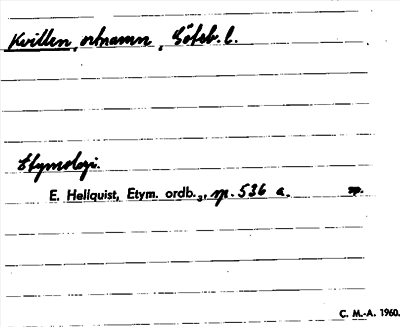 Kvillen, ortnamn, Göteb. l.
Etymologi.
E. Hellquist, Etym. ordb.3, sp. 536 a.
C. M.-A. 1960.